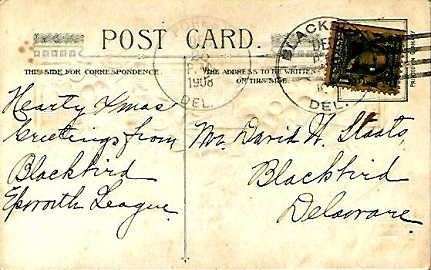 POST CARD.
THIS SIDE FOR CORRESPONDENCE
THE ADDRESS TO BE WRITTEN
ON THIS SIDE
P.M.
1908
DEL.
BLACKB
DE
DEL.
Hearty Xmas
Greetings from
Blackbird
Epworth League
Mr. David W. Staats
Blackbird
Delaware.